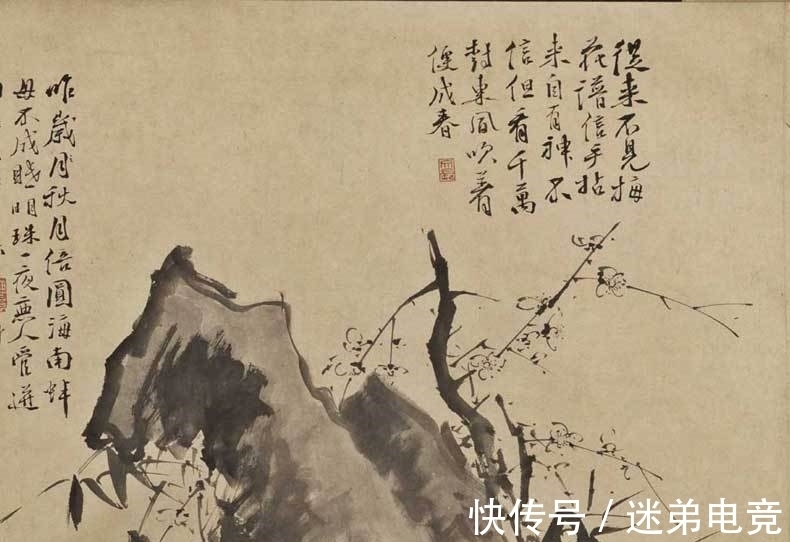 從来不見梅
花譜信手拈
来自有神不
信但看千萬
樹東風吹着
便成春
昨歲秋月倍圓海南蚌
母不成眠明珠一夜無人管迸
快传号 / 迷弟电竞